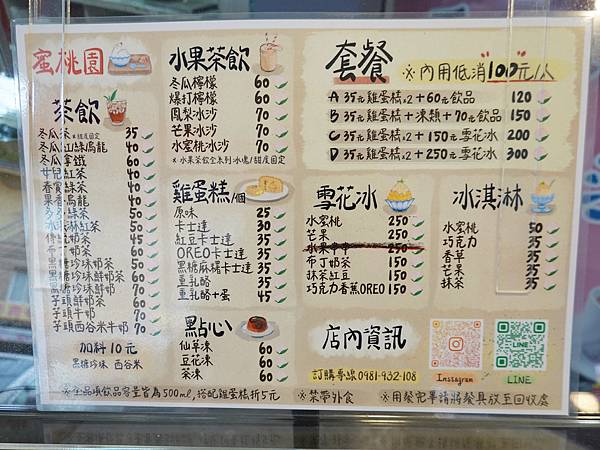 蜜桃園
茶飲
冬瓜茶 ※甜度固定 35
冬瓜紅/綠/烏龍 40
冬瓜拿鐵 60
女兒紅茶 40
40
50
50
50
45
布丁奶茶 60
黑糖珍珠奶茶 50
黑糖珍珠鮮奶茶 60
黑糖珍珠鮮奶 70
芋頭鮮奶茶 60
芋頭牛奶 70
芋頭西谷米牛奶 70
加料10元
黑糖珍珠 西谷米
水果茶飲
冬瓜檸檬 60
爆打檸檬 60
鳳梨冰沙 70
芒果冰沙 70
水蜜桃冰沙 70
※水果茶飲全系列冰塊/甜度固定
雞蛋糕/個
原味 25
卡士達 30
紅豆卡士達 35
OREO卡士達 35
黑糖麻糬卡士達 35
重乳酪 35
重乳酪+蛋 45
點心
仙草凍 60
豆花凍 60
茶凍 60
套餐 ※內用低消100元/人
A 35元雞蛋糕x2+60元飲品 120
B 35元雞蛋糕+凍類+70元飲品 150
C 35元雞蛋糕x2+150元雪花冰 200
D 35元雞蛋糕x2+250元雪花冰 300
雪花冰
水蜜桃 250
芒果 250
水果串串 250
布丁奶茶 150
抹茶紅豆 150
巧克力香蕉OREO 150
冰淇淋
水蜜桃 50
巧克力 35
香草 35
芒果 35
抹茶 35
店內資訊
訂購專線0981-932-108
Instagram
LINE
LINE
※全品項飲品容量皆為500ml,搭配雞蛋糕折5元
※禁帶外食
※用餐完畢請將餐具放至回收處